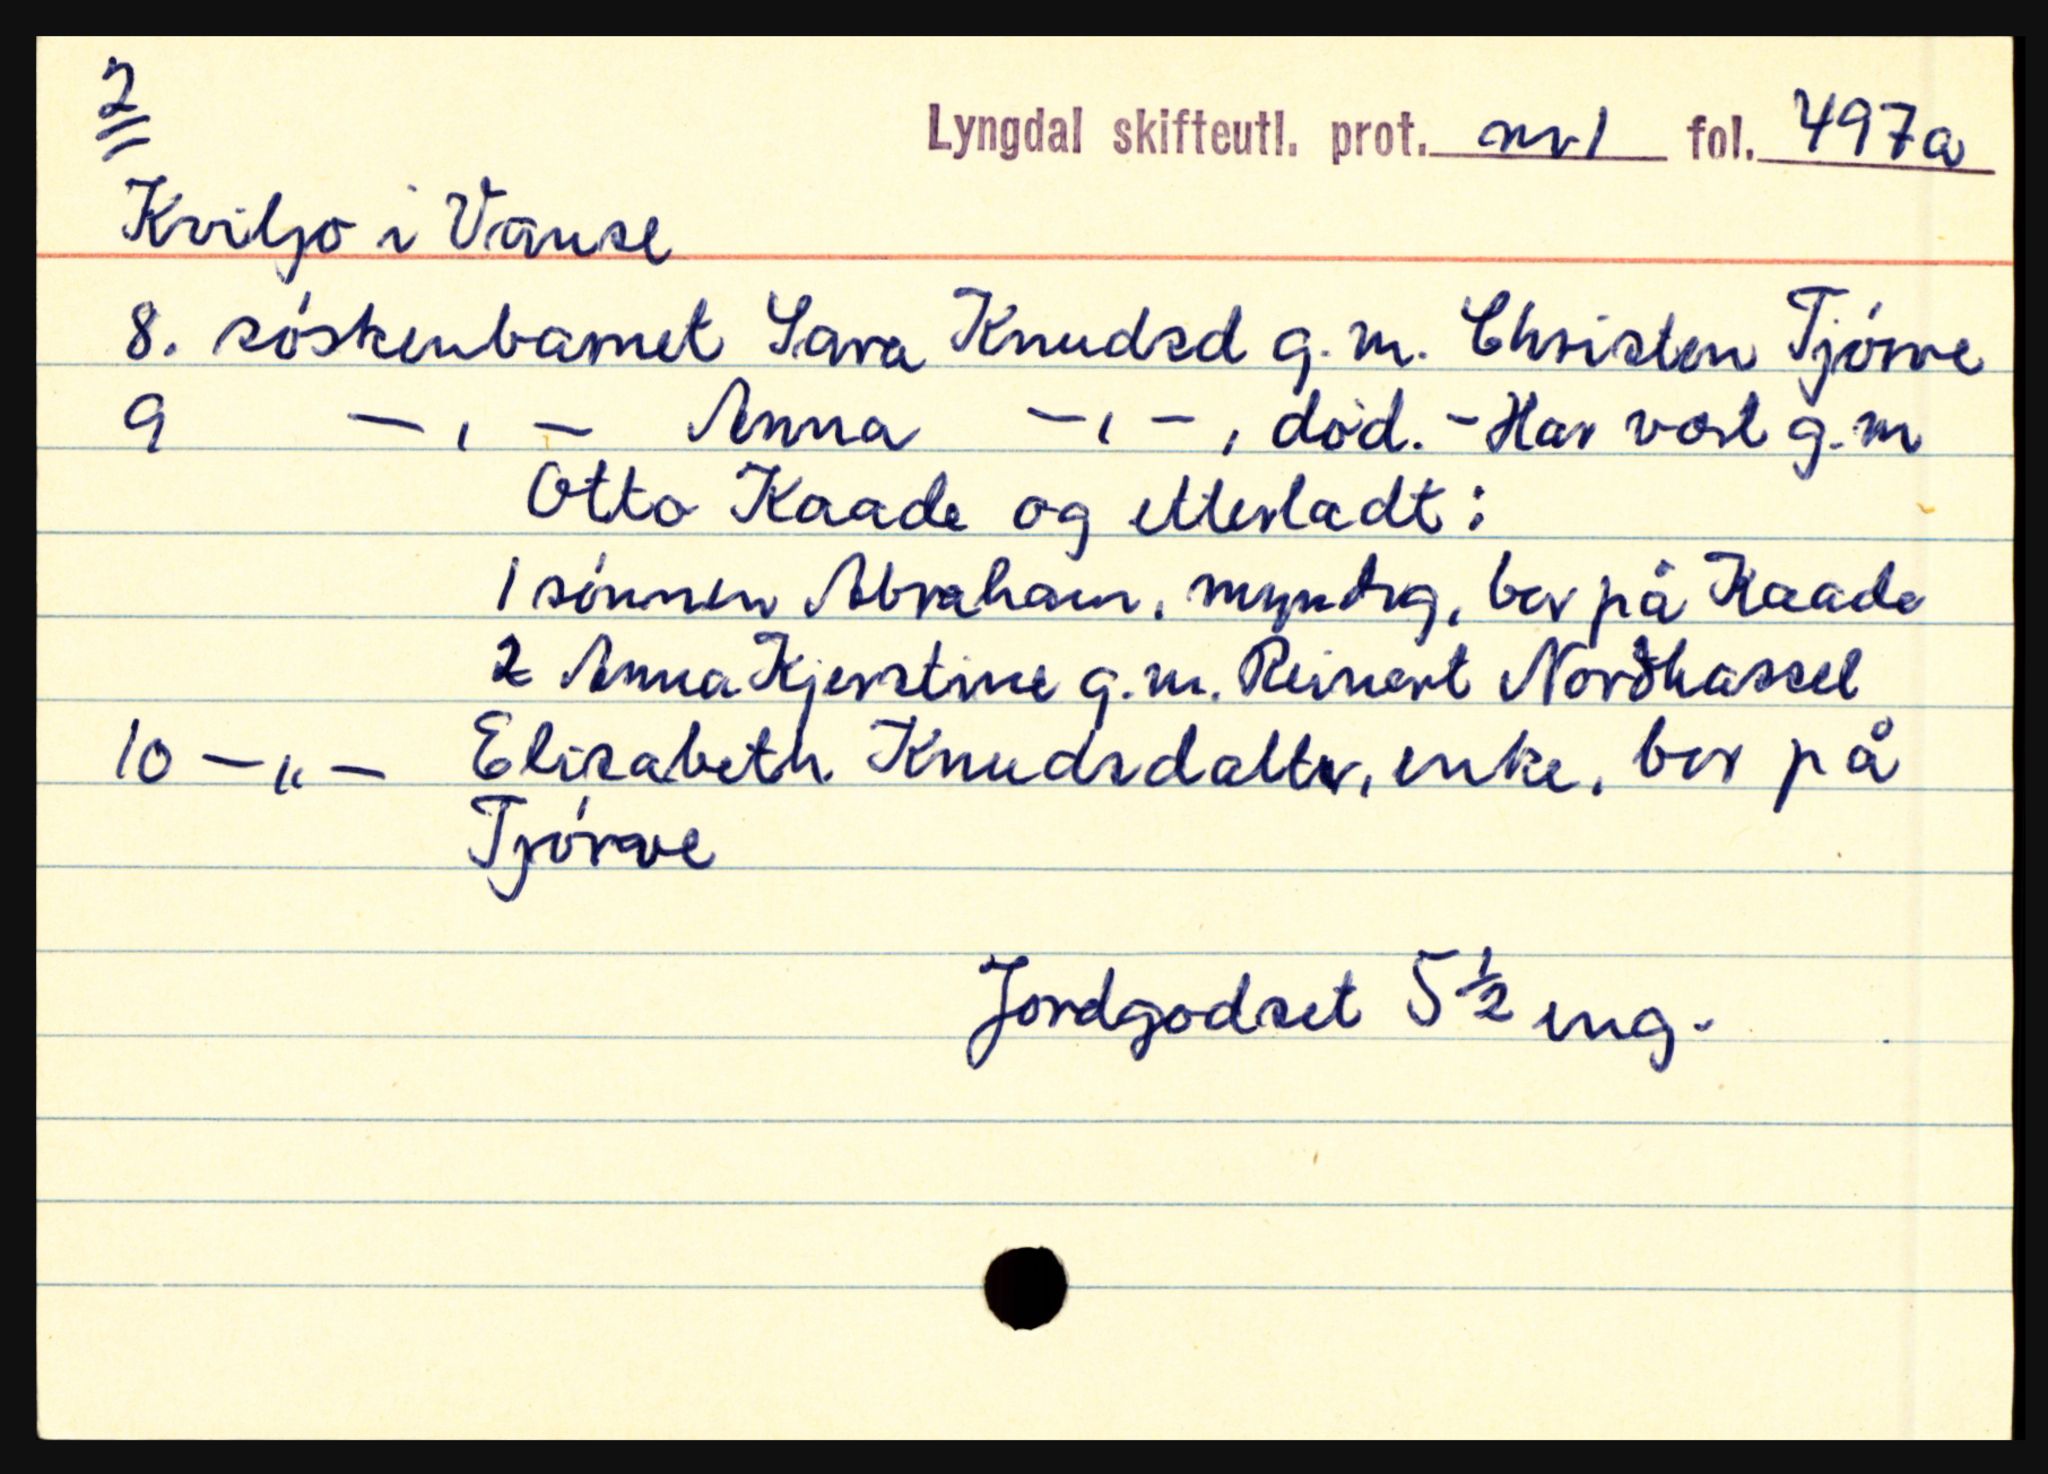 2
Lyngdal skifteutl. prot. nr 1 fol. 497a
Kviljo i Vanse
8. søskenbarnet Sara Knudsd g.m. Christen Tjørve
9 — , — Anna — , — , død. - Har vært g.m
Otto Kaade og etterladt:
1 sønnen Abraham, myndig, bor på Kaade
2 Anna Kjerstine g.m. Reinert Nordhassel
10 — " — Elisabeth Knudsdatter, enke, bor på
Tjørve
Jordgodset 5 1/2 eng.